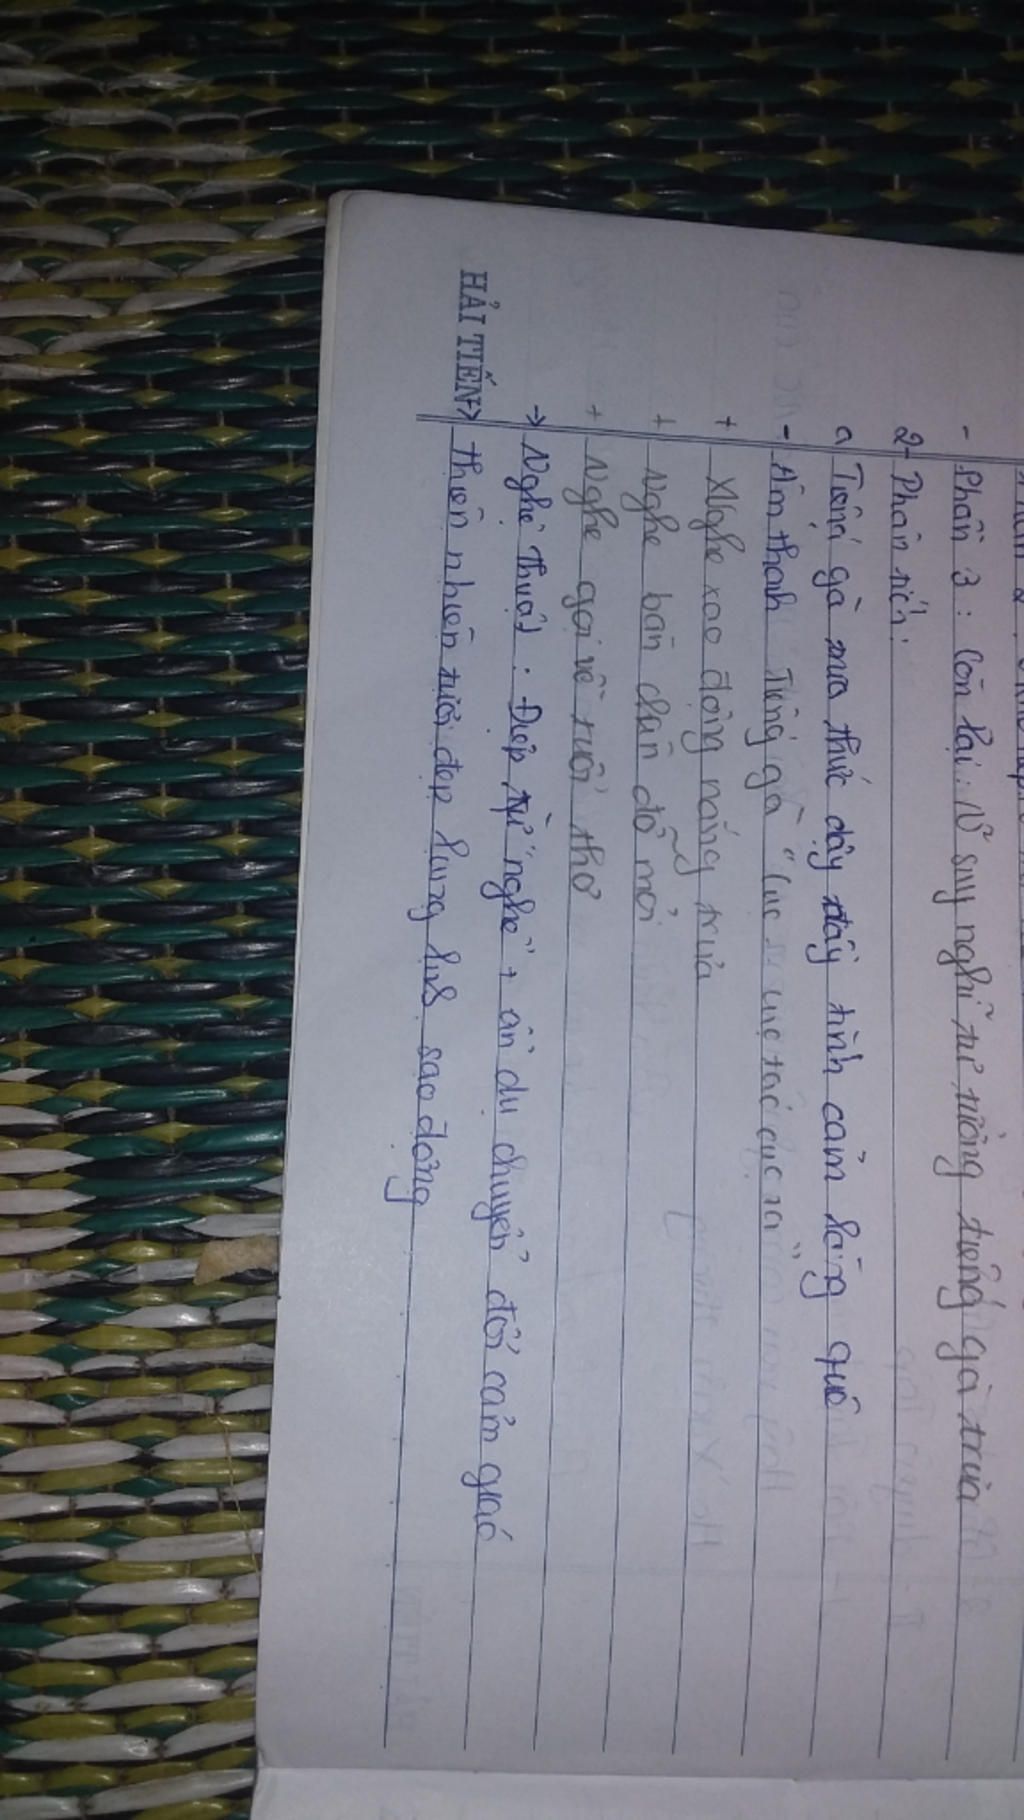 - Phần 3: Còn lại: N~ suy nghĩ từ tiếng gà trưa
2- Phân tích:
a Tiếng gà trưa thức dậy đầy tình cảm làng quê
- Âm thanh Tiếng gà "Cục ... cục tác cục ta"
+ Nghe xao động nắng trưa
+ Nghe bàn chân đỡ mỏi
+ Nghe gọi về tuổi thơ
→ Nghệ thuật: Điệp từ "nghe" + ẩn dụ chuyển đổi cảm giác
=> Thiên nhiên tươi đẹp lung linh sao động
HẢI TIẾN